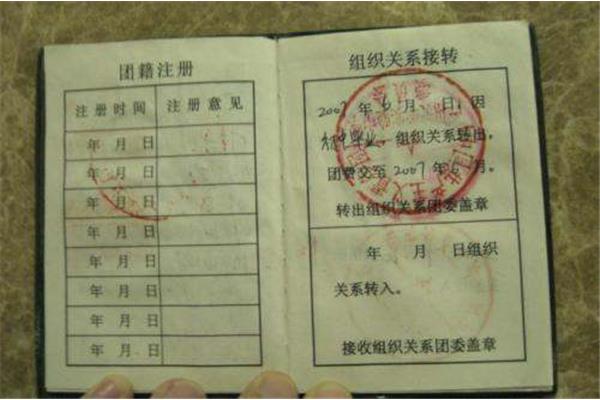 团籍注册
注册时间 注册意见
年 月 日
年 月 日
年 月 日
年 月 日
年 月 日
年 月 日
年 月 日
年 月 日
组织关系接转
2007年6月 日,因
初中毕业,组织关系转出,
团费交至2007年6月。
转出组织关系团委盖章
年 月 日组织
关系转入。
接收组织关系团委盖章